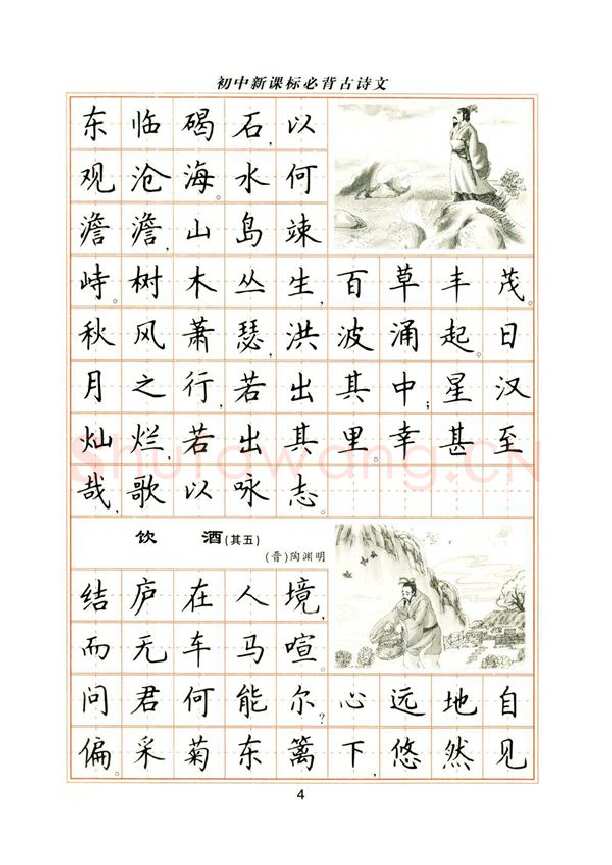 初中新课标必背古诗文
东临碣石,以
观沧海。水何
澹澹,山岛竦
峙。树木丛生,百草丰茂。
秋风萧瑟,洪波涌起。日
月之行,若出其中;星汉
灿烂,若出其里。幸甚至
哉,歌以咏志。
Shufawang.CN
饮 酒(其五)
(晋)陶渊明
结庐在人境,
而无车马喧。
问君何能尔?心远地自
偏。采菊东篱下,悠然见
4